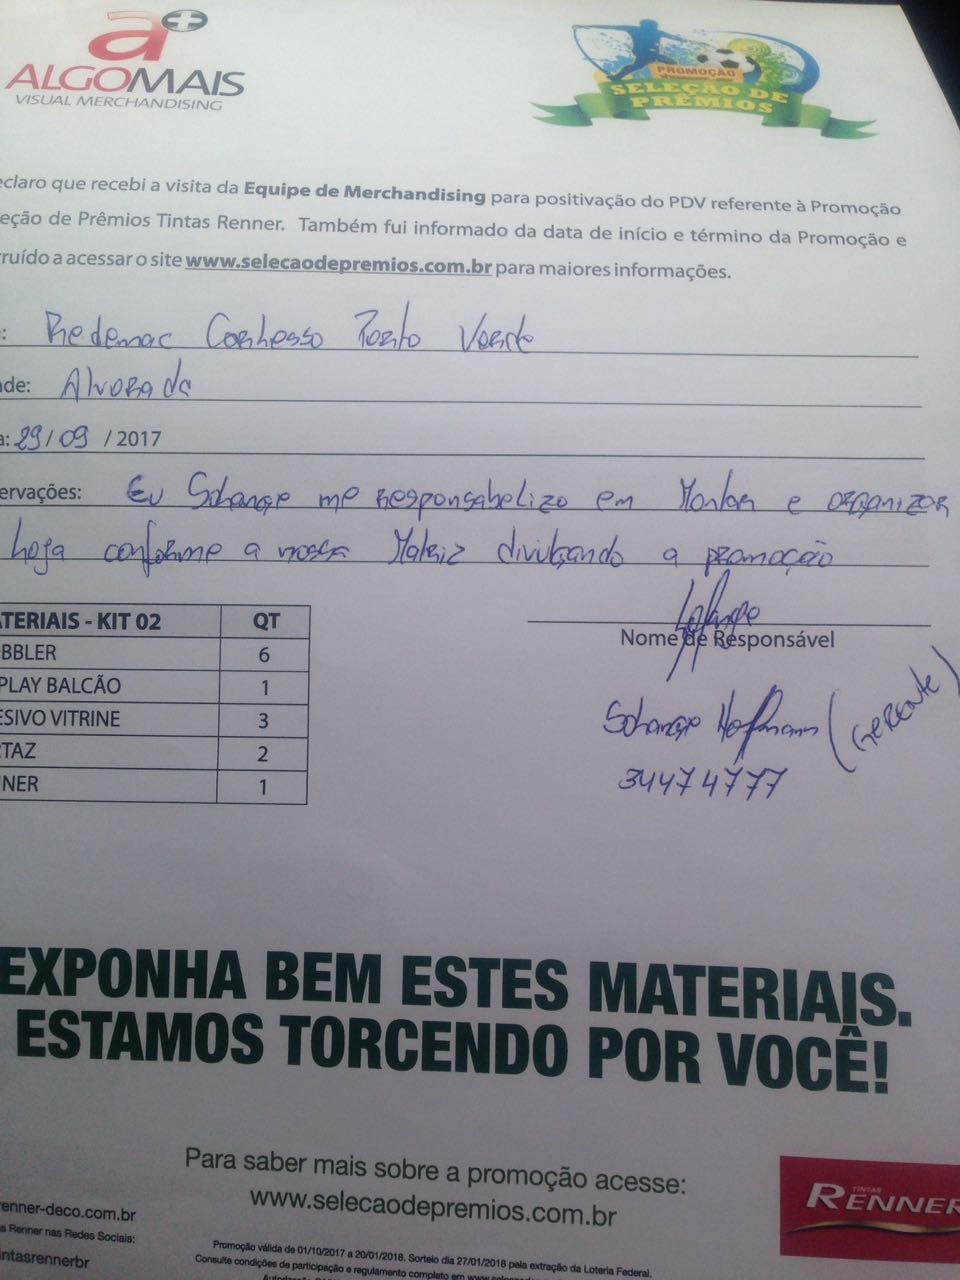 a+
ALGOMAIS
VISUAL MERCHANDISING
PROMOÇÃO
SELEÇÃO DE
PRÊMIOS
eclaro que recebi a visita da Equipe de Merchandising para positivação do PDV referente à Promoção
eção de Prêmios Tintas Renner. Também fui informado da data de início e término da Promoção e
ruído a acessar o site www.selecaodepremios.com.br para maiores informações.
: Redemac Porto Verde
de: Alvorada
a: 29/09/2017
ervações: Eu Solange me responsabelizo em Montar e organizar
loja conforme a nossa Matriz divulgando a promoção
Solange
Nome de Responsável
Solange Hofmann (Gerente)
34474777
ATERIAIS - KIT 02 QT
BBLER 6
PLAY BALCÃO 1
ESIVO VITRINE 3
RTAZ 2
NER 1
EXPONHA BEM ESTES MATERIAIS.
ESTAMOS TORCENDO POR VOCÊ!
Para saber mais sobre a promoção acesse:
www.selecaodepremios.com.br
renner-deco.com.br
s Renner nas Redes Sociais:
intasrennerbr
TINTAS
RENNER
Promoção válida de 01/10/2017 a 20/01/2018. Sorteio dia 27/01/2018 pela extração da Loteria Federal.
Consulte condições de participação e regulamento completo em www.selecaode